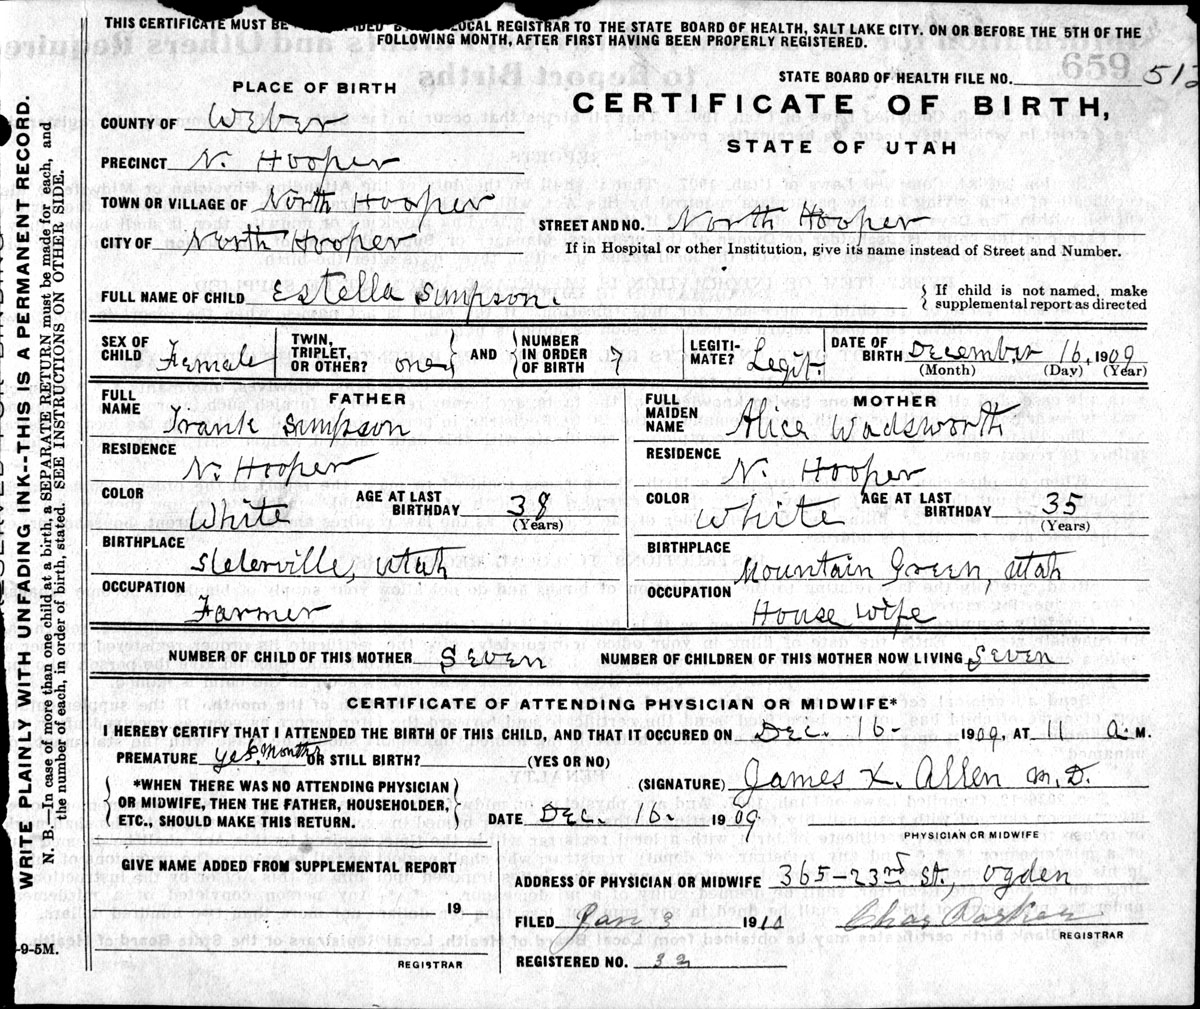 THIS CERTIFICATE MUST BE LOCAL REGISTRAR TO THE STATE BOARD OF HEALTH, SALT LAKE CITY. ON OR BEFORE THE 5TH OF THE
FOLLOWING MONTH, AFTER FIRST HAVING BEEN PROPERLY REGISTERED.
STATE BOARD OF HEALTH FILE NO. 512
659
PLACE OF BIRTH
CERTIFICATE OF BIRTH,
STATE OF UTAH
COUNTY OF Weber
PRECINCT N. Hooper
TOWN OR VILLAGE OF North Hooper
STREET AND NO. North Hooper
CITY OF North Hooper
If in Hospital or other Institution, give its name instead of Street and Number.
FULL NAME OF CHILD Estella Simpson.
{ If child is not named, make
supplemental report as directed
SEX OF CHILD Female
TWIN, TRIPLET, OR OTHER? one } AND { NUMBER IN ORDER OF BIRTH 7
LEGITI-MATE? Legit.
DATE OF BIRTH December 16, 1909
(Month) (Day) (Year)
FATHER
FULL NAME Frank Simpson
RESIDENCE N. Hooper
COLOR White
AGE AT LAST BIRTHDAY 38
(Years)
BIRTHPLACE Slaterville, Utah
OCCUPATION Farmer
MOTHER
FULL MAIDEN NAME Alice Wadsworth
RESIDENCE N. Hooper
COLOR White
AGE AT LAST BIRTHDAY 35
(Years)
BIRTHPLACE Mountain Green, Utah
OCCUPATION House wife
NUMBER OF CHILD OF THIS MOTHER Seven
NUMBER OF CHILDREN OF THIS MOTHER NOW LIVING Seven
CERTIFICATE OF ATTENDING PHYSICIAN OR MIDWIFE*
I HEREBY CERTIFY THAT I ATTENDED THE BIRTH OF THIS CHILD, AND THAT IT OCCURED ON Dec. 16- 1909, AT 11 a. M.
PREMATURE yes months OR STILL BIRTH? (YES OR NO)
*WHEN THERE WAS NO ATTENDING PHYSICIAN
OR MIDWIFE, THEN THE FATHER, HOUSEHOLDER,
ETC., SHOULD MAKE THIS RETURN.
(SIGNATURE) James X. Allen M.D.
DATE Dec. 16. 1909
PHYSICIAN OR MIDWIFE
GIVE NAME ADDED FROM SUPPLEMENTAL REPORT
19
REGISTRAR
ADDRESS OF PHYSICIAN OR MIDWIFE 365-23rd St. Ogden
FILED Jan 3 1910
REGISTRAR
REGISTERED NO. 32
-9-5M.
WRITE PLAINLY WITH UNFADING INK--THIS IS A PERMANENT RECORD.
N. B.—In case of more than one child at a birth, a SEPARATE RETURN must be made for each, and
the number of each, in order of birth, stated. SEE INSTRUCTIONS ON OTHER SIDE.